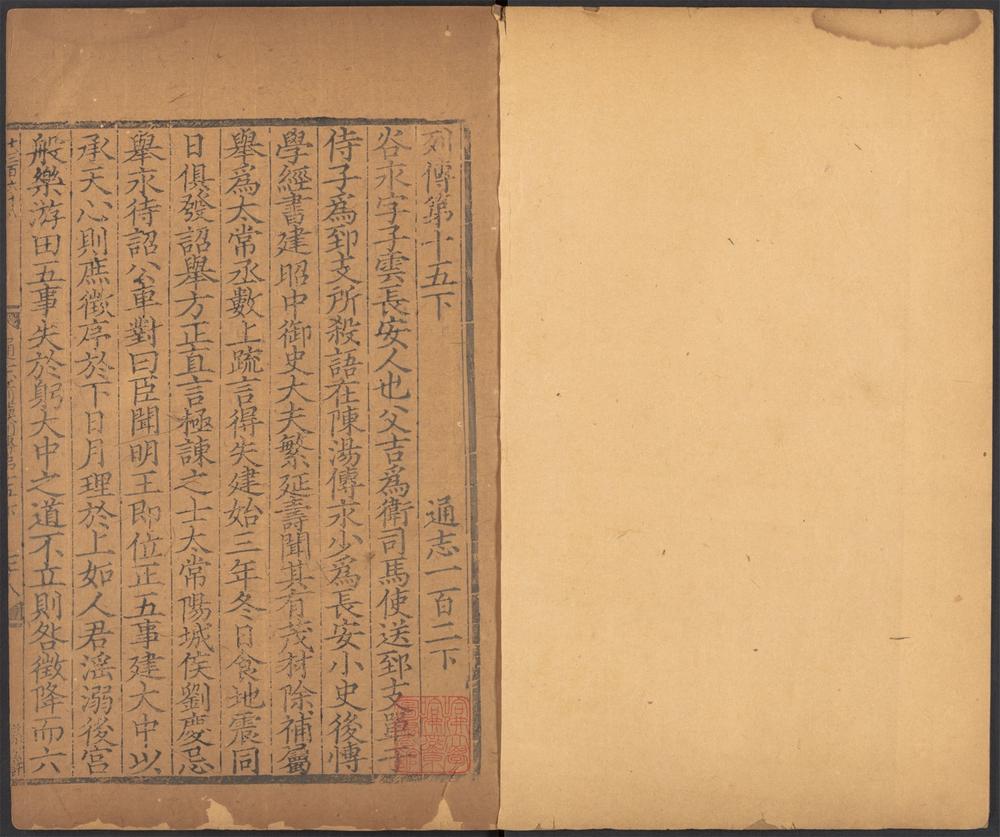 列傳第十五下　通志一百二下
谷永字子雲長安人也父吉爲衛司馬使送郅支單于
侍子爲郅支所殺語在陳湯傳永少爲長安小史後愽
學經書建昭中御史大夫繁延壽聞其有茂材除補屬
舉爲太常丞數上疏言得失建始三年冬日食地震同
日俱發詔舉方正直言極諫之士太常陽城侯劉慶忌
舉永待詔公車對曰臣聞明王即位正五事建大中以
承天心則庶徵序於下日月理於上如人君滛溺後宮
般樂游田五事失於躬大中之道不立則咎徵降而六